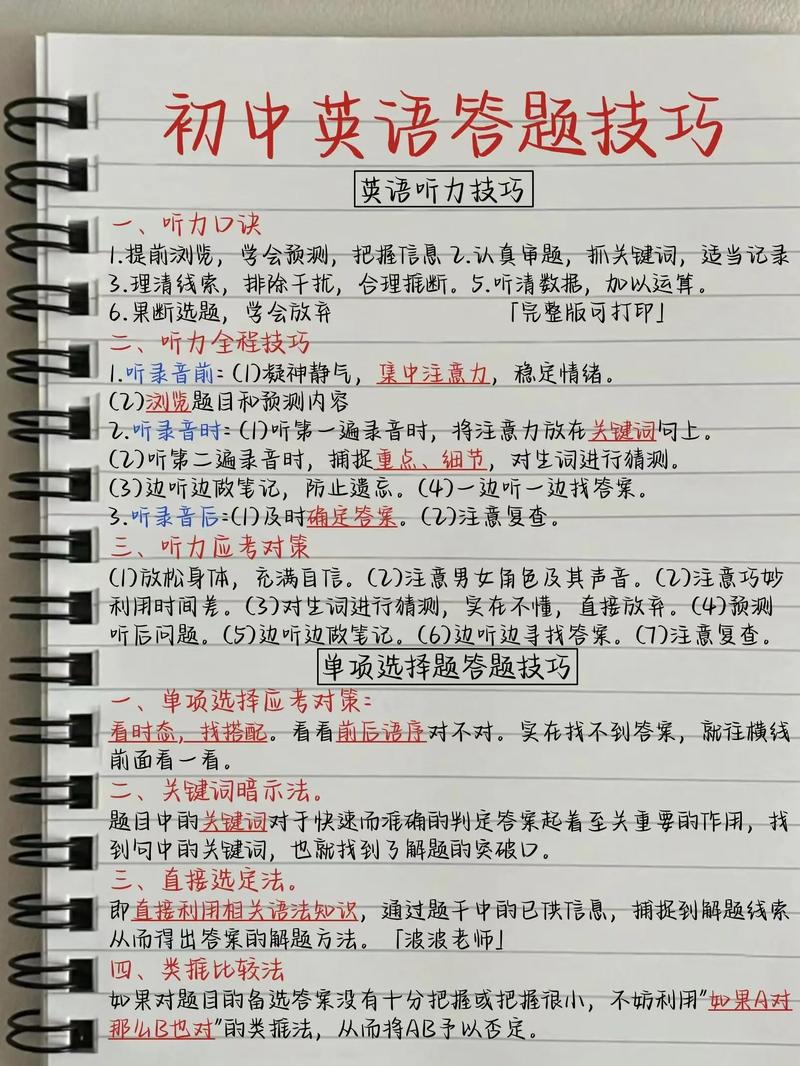 初中英语答题技巧
英语听力技巧
一、听力口诀
1.提前浏览，学会预测，把握信息 2.认真审题，抓关键词，适当记录
3.理清线索，排除干扰，合理推断。5.听清数据，加以运算。
6.果断选题，学会放弃 「完整版可打印」
二、听力全程技巧
1.听录音前：(1)凝神静气，集中注意力，稳定情绪。
(2)浏览题目和预测内容
2.听录音时：(1)听第一遍录音时，将注意力放在关键词句上。
(2)听第二遍录音时，捕捉重点、细节，对生词进行猜测。
(3)边听边做笔记，防止遗忘。(4)一边听一边找答案。
3.听录音后：(1)及时确定答案。(2)注意复查。
三、听力应考对策
(1)放松身体，充满自信。(2)注意男女角色及其声音。(2)注意巧妙
利用时间差。(3)对生词进行猜测，实在不懂，直接放弃。(4)预测
听后问题。(5)边听边做笔记。(6)边听边寻找答案。(7)注意复查。
单项选择题答题技巧
一、单项选择应考对策：
看时态，找搭配。看看前后语序对不对。实在找不到答案，就往横线
前面看一看。
二、关键词暗示法。
题目中的关键词对于快速而准确的判定答案起着至关重要的作用，找
到句中的关键词，也就找到了解题的突破口。
三、直接选定法。
即直接利用相关语法知识，通过题干中的已供信息，捕捉到解题线索
从而得出答案的解题方法。「波波老师」
四、类推比较法
如果对题目的备选答案没有十分把握或把握很小，不妨利用"如果A对
那么B也对"的类推法，从而将AB予以否定。